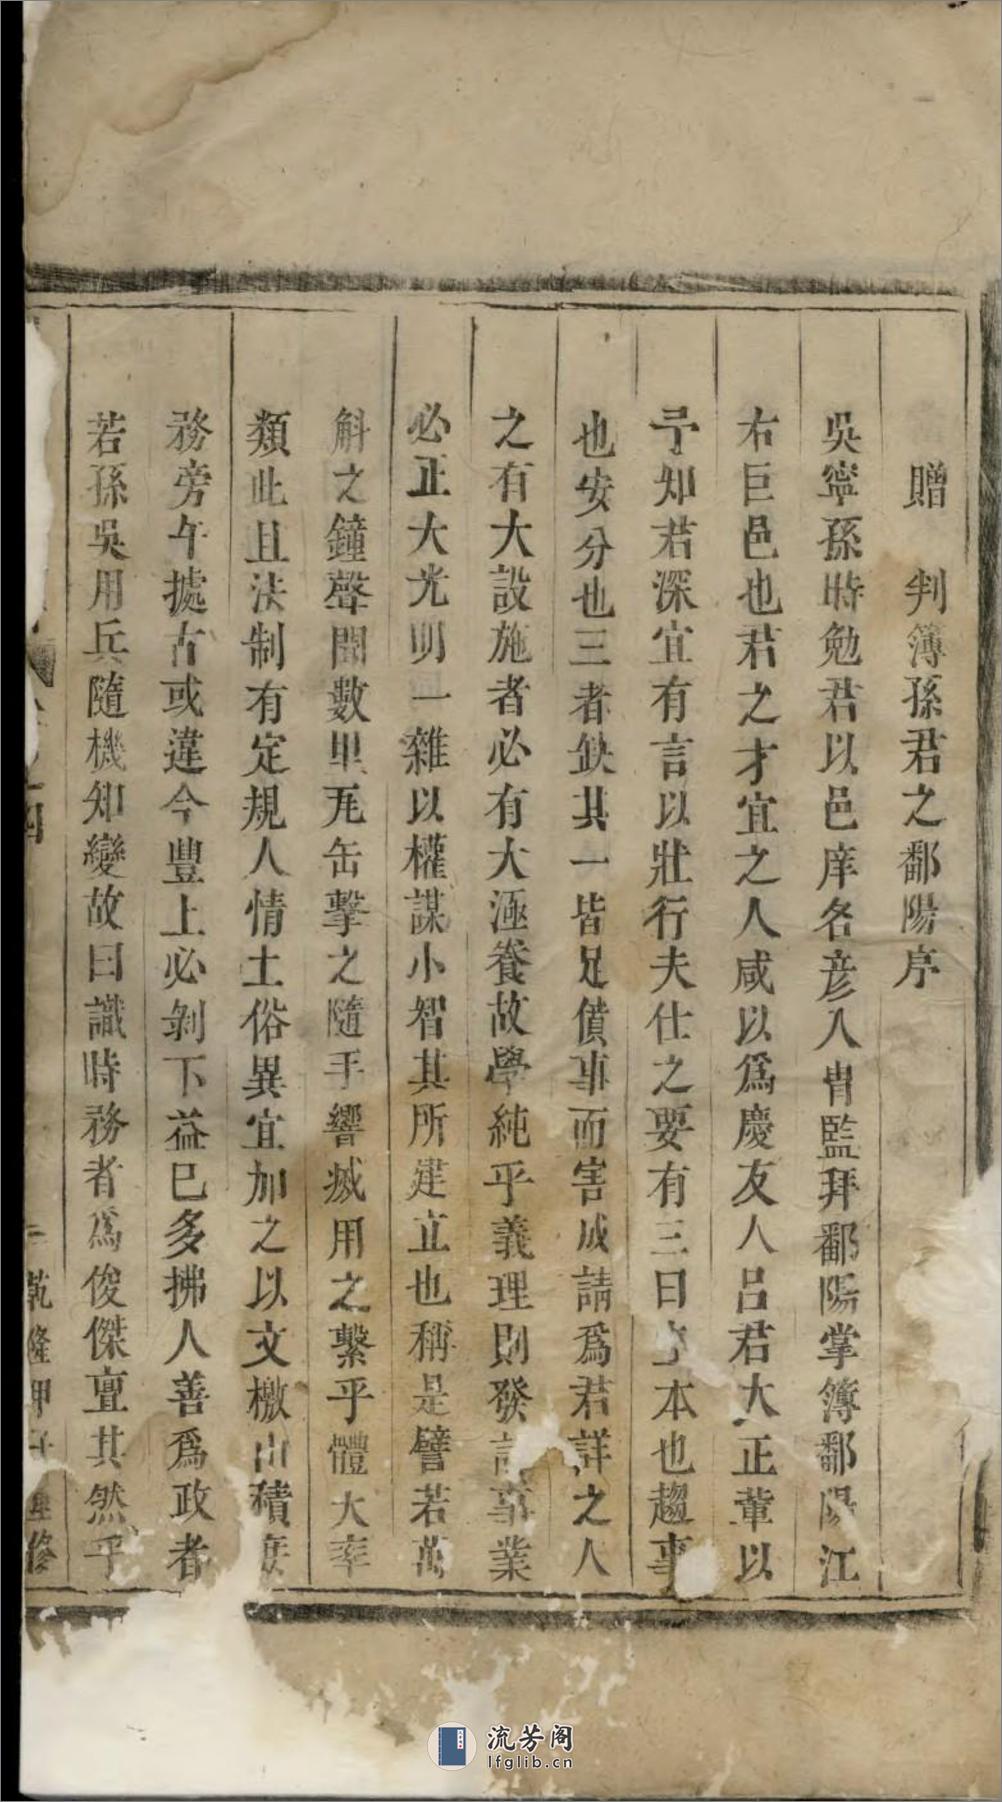 贈　判簿孫君之鄱陽序
吳寧孫時勉君以邑庠名彦入胄監拜鄱陽掌簿鄱陽江
右巨邑也君之才宜之人咸以爲慶友人呂君大正輩以
予知君深宜有言以壯行夫仕之要有三曰本也趨事
也安分也三者缺其一皆足僨事而害成請爲君詳之人
之有大設施者必有大涵養故學純乎義理則發事業
必正大光明一雜以權謀小智其所建立也稱是譬若萬
斛之鐘聲聞數里瓦缶擊之隨手響滅用之繫乎體大率
類此且法制有定規人情土俗異宜加之以文檄山積庶
務旁午據古或違今豐上必剝下益巳多拂人善爲政者
若孫吳用兵隨機知變故曰識時務者爲俊傑亶其然乎
四
乾隆甲子重修
流芳阁
lfglib.cn